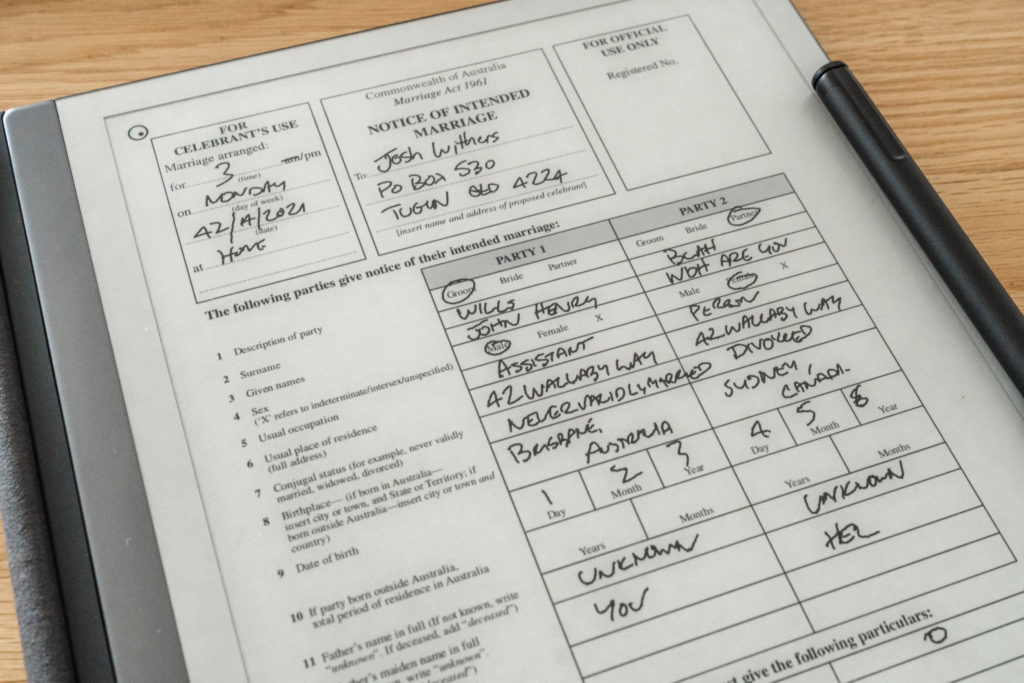 FOR
CELEBRANT'S USE
Marriage arranged:
for 3 am/pm
(time)
on MONDAY
(day of week)
42/14/2021
(date)
at HOME
Commonwealth of Australia
Marriage Act 1961
NOTICE OF INTENDED
MARRIAGE
To: Josh Withers
PO BOX 530
TUGUN QLD 4224
[insert name and address of proposed celebrant]
FOR OFFICIAL
USE ONLY
Registered No.
The following parties give notice of their intended marriage:
PARTY 1
PARTY 2
1 Description of party
Groom Bride Partner
Groom Bride Partner
2 Surname
WILLS
BLAH
3 Given names
JOHN HENRY
WOH ARE YOU
4 Sex
('X' refers to indeterminate/intersex/unspecified)
Male Female X
Male Female X
5 Usual occupation
ASSISTANT
PERSON
6 Usual place of residence
(full address)
42 WALLABY WAY
42 WALLABY WAY
7 Conjugal status (for example, never validly
married, widowed, divorced)
NEVER VALIDLY MARRIED
DIVORCED
8 Birthplace— (if born in Australia—
insert city or town, and State or Territory; if
born outside Australia—insert city or town and
country)
BRISBANE,
AUSTRALIA
SYDNEY,
CANADA.
9 Date of birth
1 2 3
Day Month Year
4 5 8
Day Month Year
10 If party born outside Australia,
total period of residence in Australia
Years Months
Years Months
11 Father's name in full (If not known, write
"unknown". If deceased, add "deceased")
UNKNOWN
UNKNOWN
maiden name in full
write "unknown".
"deceased")
YOU
HEL
give the following particulars: